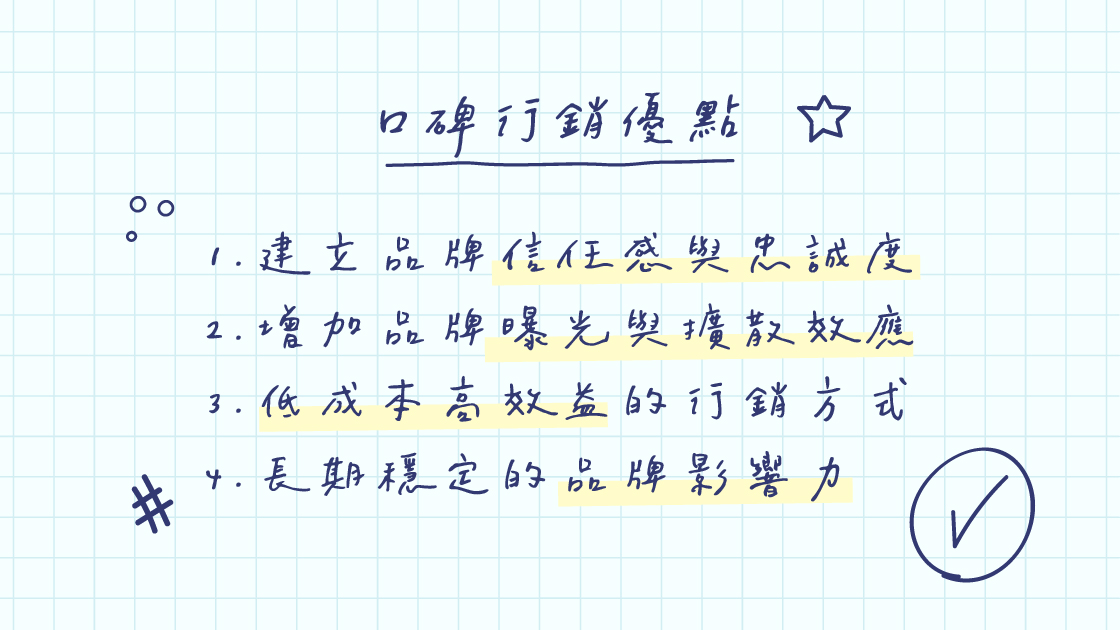 口碑行銷優點
1. 建立品牌信任感與忠誠度
2. 增加品牌曝光與擴散效應
3. 低成本高效益的行銷方式
4. 長期穩定的品牌影響力